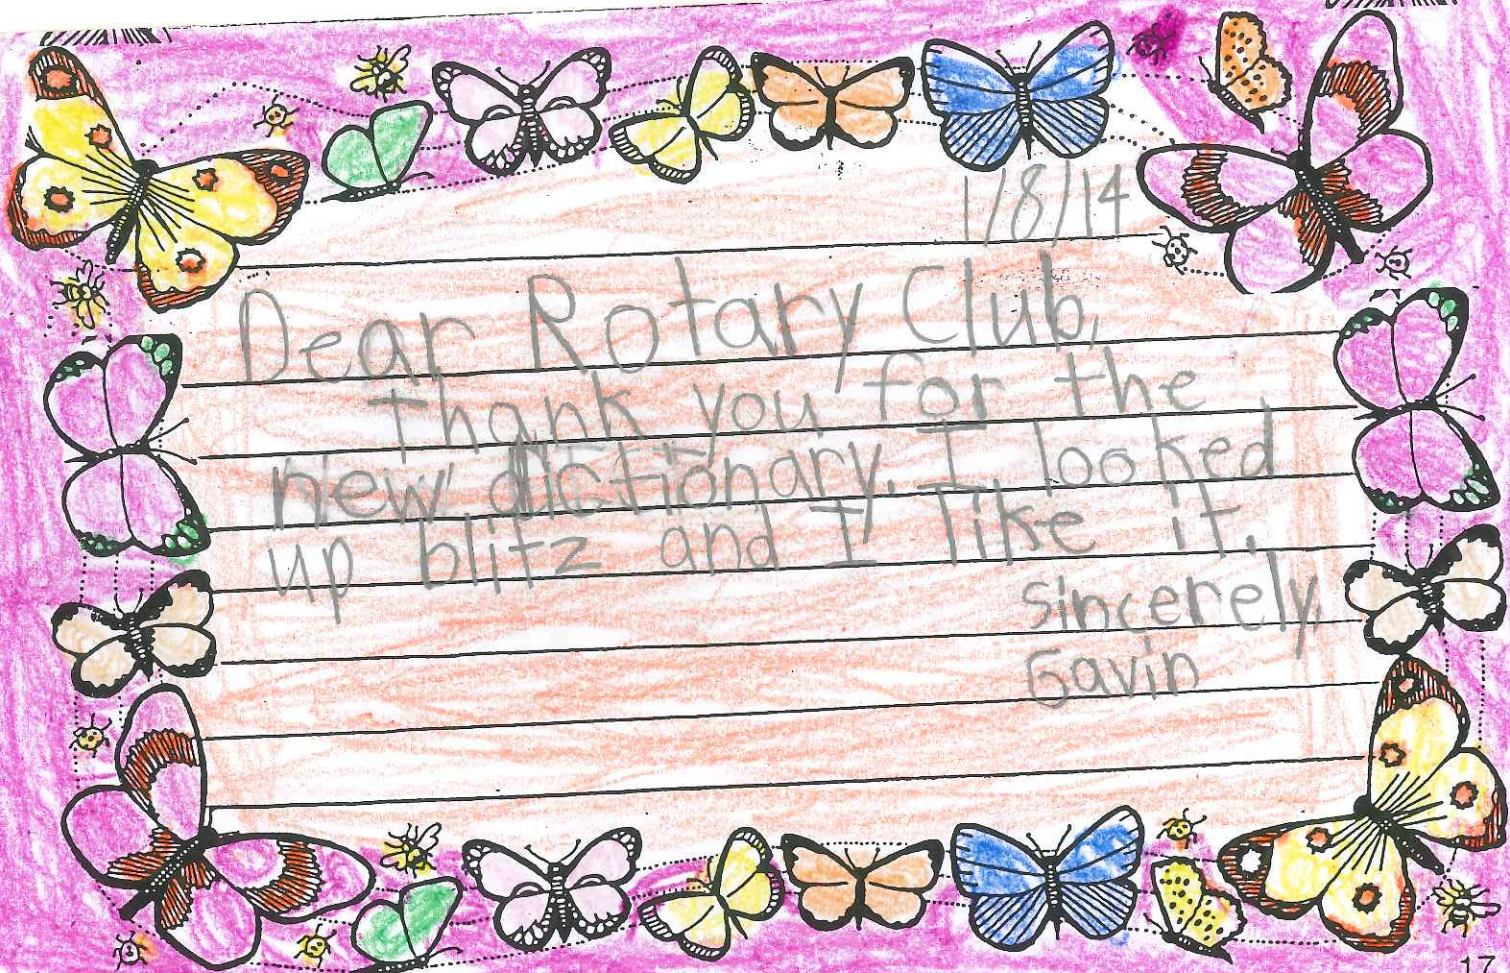 1/8/14
Dear Rotary Club,
thank you for the
new dictionary. I looked
up blitz and I like it.
sincerely,
Gavin
17